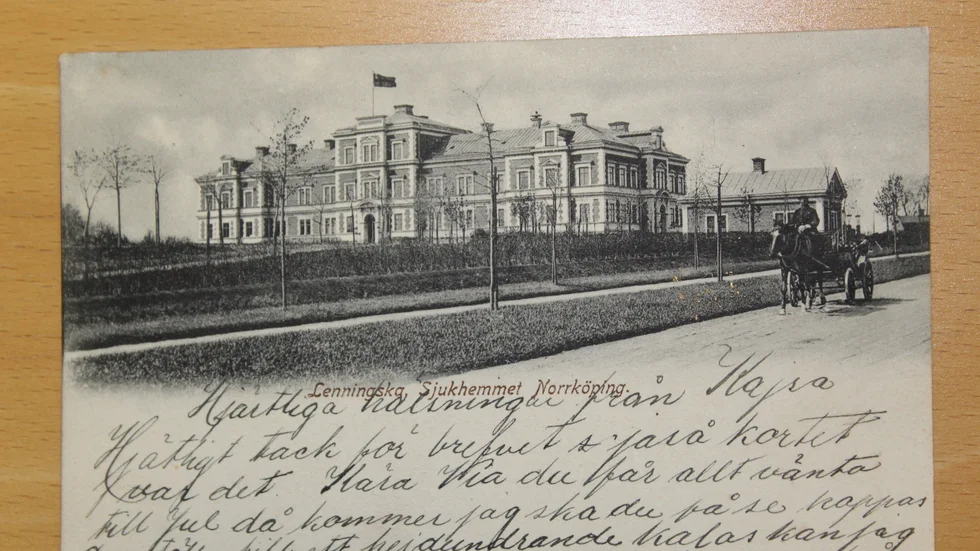 Lenningska, Sjukhemmet Norrköping.
Hjärtliga hälsningar från Kajsa
Hjätligt tack för brefvet s. jaså kortet
var det. Kära Kia du får allt vänta
till Jul då kommer jag ska du få se hoppas
till ett hejdundrande kalas kan jag